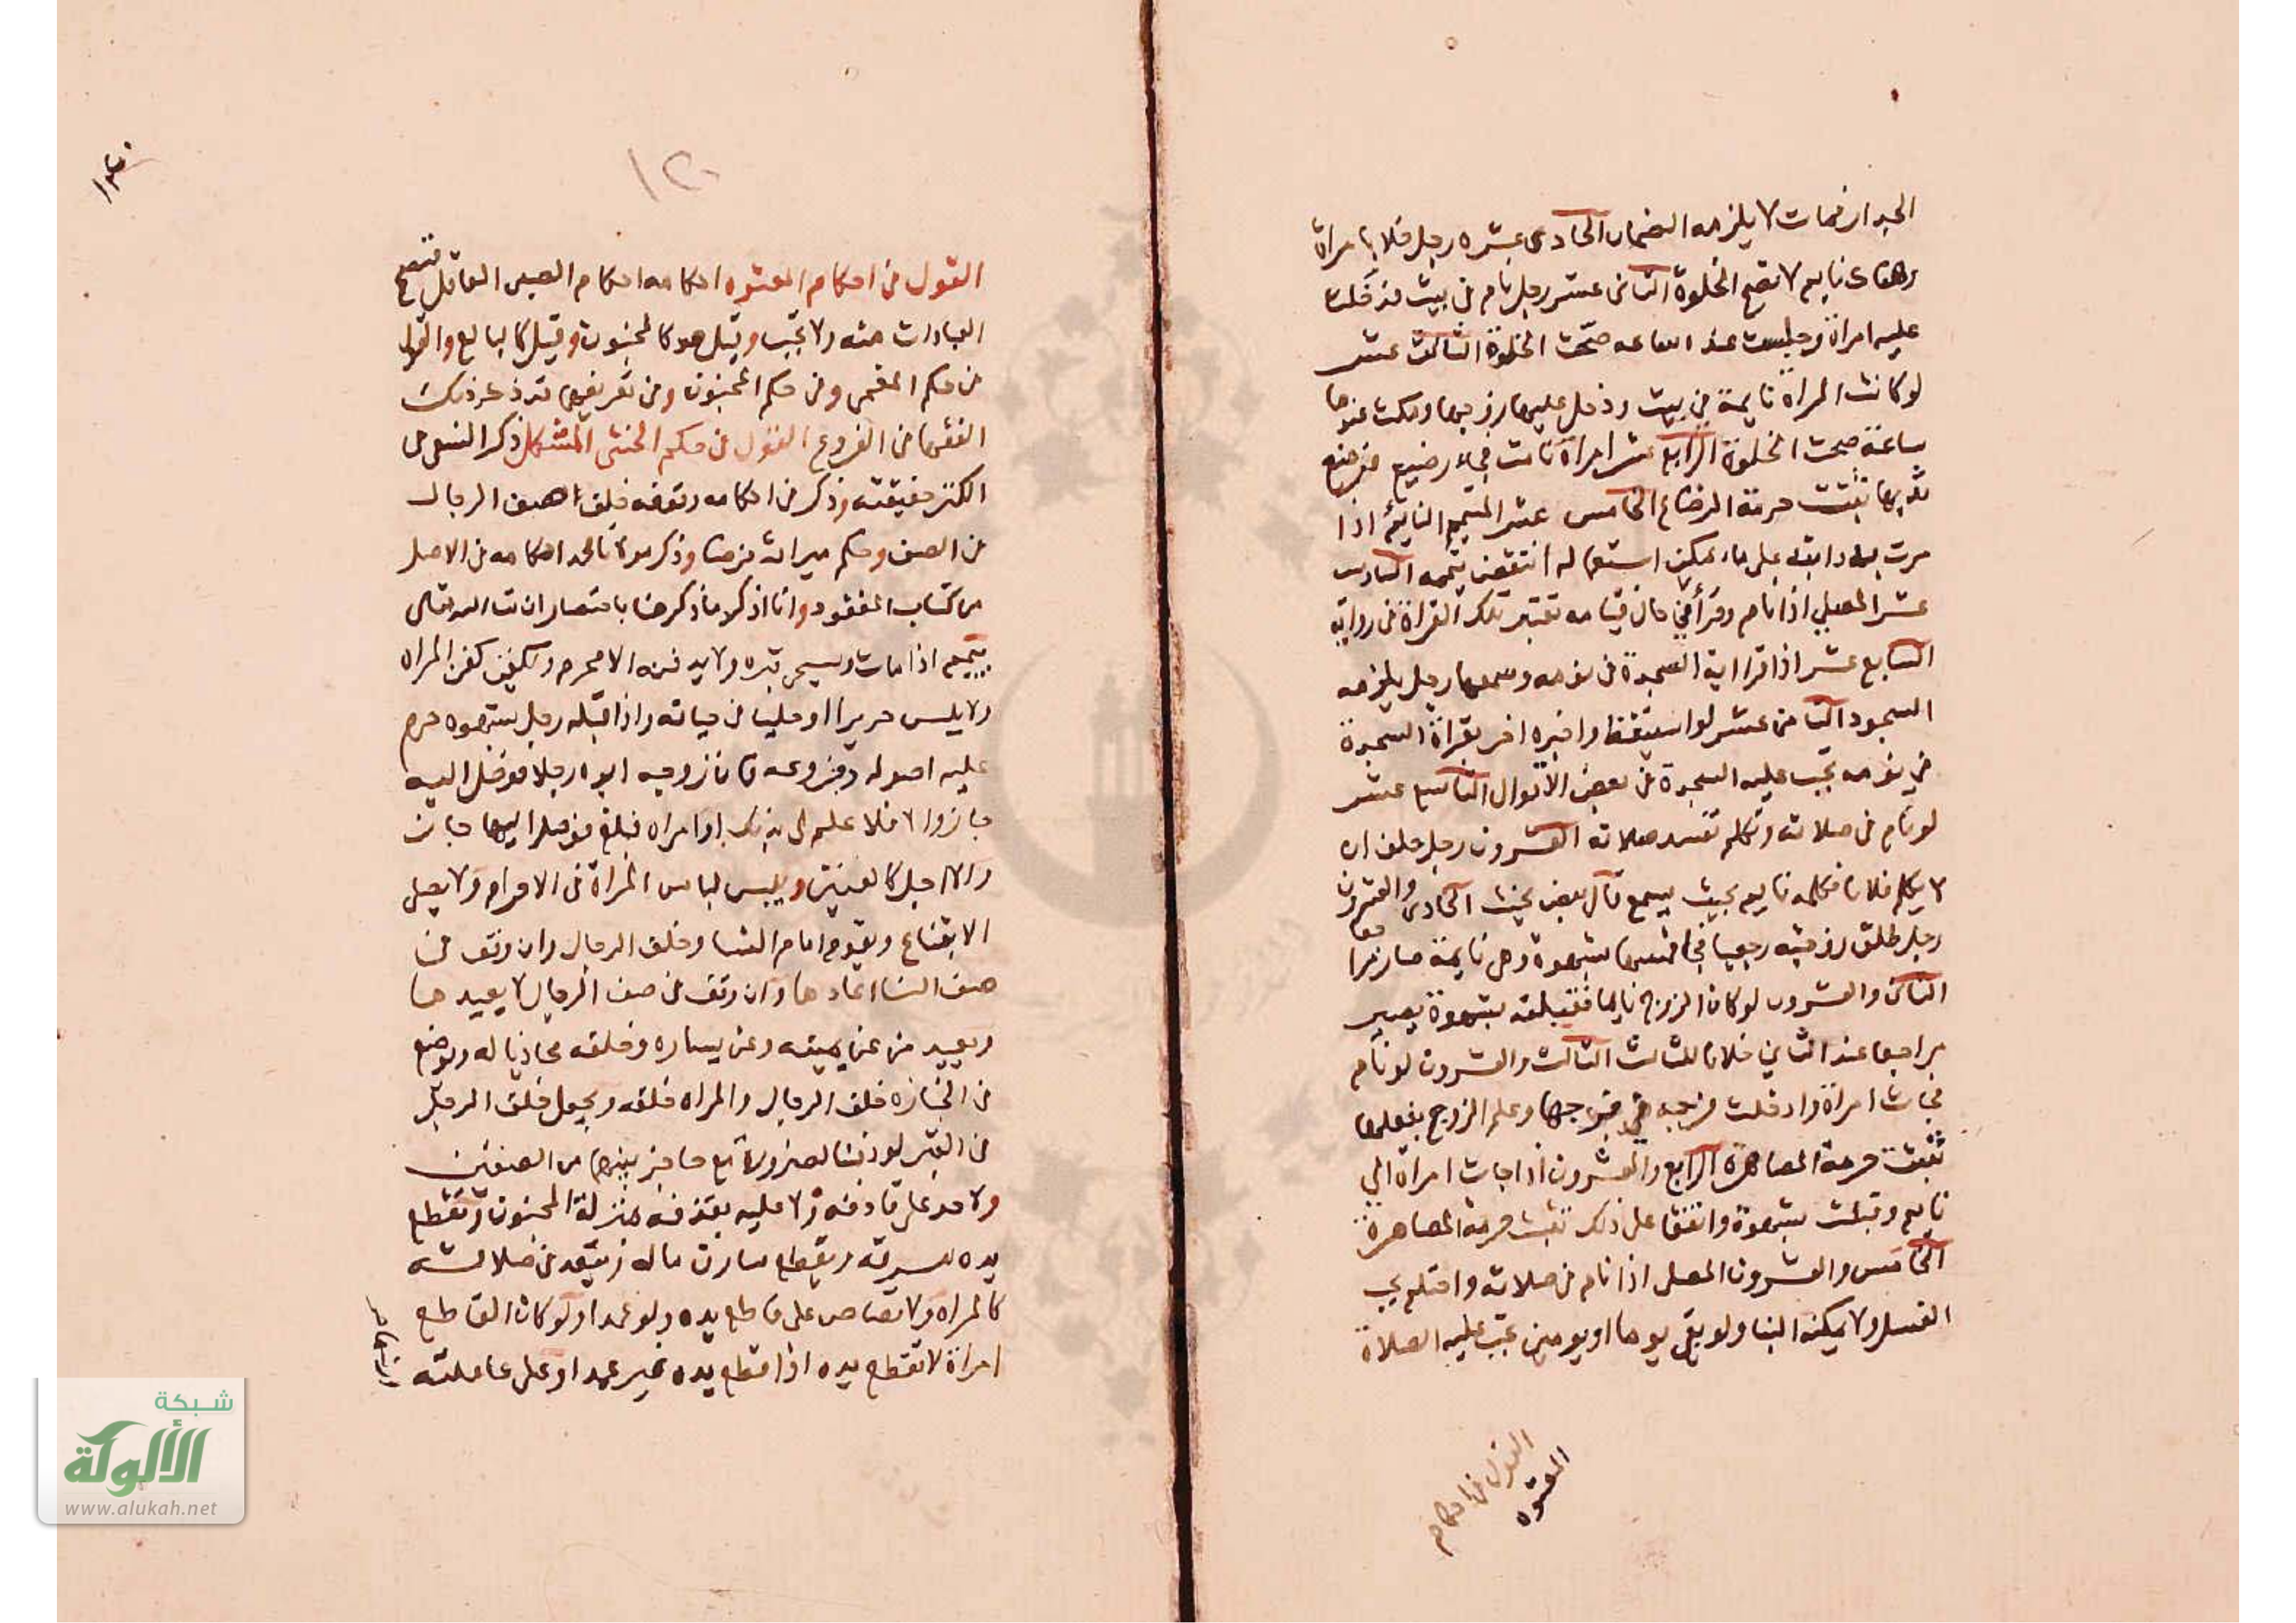 الجدار فمات لا يلزمه الضمان الحادى عشره رجل خلا بامراة
وهناك نايم لا تصح الخلوة الثانى عشر رجل نام فى بيت فدخلت
عليه امراة وجلست عنده ساعه صحت الخلوة الثالث عشر
لو كانت المراة نايمة فى بيت ودخل عليها زوجها ومكث عندها
ساعة صحت الخلوة الرابع عشر امراة نامت فجاء رضيع فرضع
ثديها تثبت حرمة الرضاع الخامس عشر المتيمم النايم اذا
مرت به دابته على ماء يمكن استعماله انتقض تيممه السادس
عشر المصلي اذا نام وقرأ فى حال قيامه تعتبر تلك القراة فى رواية
السابع عشر اذا قرا اية السجدة فى نومه وسمعها رجل يلزمه
السجود الثامن عشر لو استيقظ واخبره اخر بقراة السجدة
فى نومه تجب عليه السجدة فى بعض الأقوال التاسع عشر
لو نام فى صلاته وتكلم تفسد صلاته العشرون رجل حلف ان
لا يكلم فلانا فكلمه نايم بحيث يسمع قال بعض يحنث الحادى والعشرون
رجل طلق زوجته رجعيا فجا فمسها بشهوة وهى نايمة صار مراجعا
الثانى والعشرون لو كان الزوج نايما فقبلته بشهوة يصير
مراجعا عند الثاني خلافا للثالث الثالث والعشرون لو نام
فجات امراة وادخلت فرجه فى فرجها وعلم الزوج بفعلها
تثبت حرمة المصاهرة الرابع والعشرون اذا جات امراة الي
نايم وقبلت بشهوة واتفقا على ذلك تثبت حرمة المصاهرة
الخامس والعشرون المصلى اذا نام فى صلاته واحتلم يجب
الغسل ولا يمكنه البنا ولو بقى يوما او يومين تجب عليه الصلاة
القول فى احكام
المعتوه
١٢٠
القول فى احكام المعتوه احكامه احكام الصبى العاقل فتصح
العبادات منه ولا تجب وقيل هو كالمجنون وقيل كالبالغ والقول
فى حكم المغمى وفى حكم المجنون وفى تعريفهما قد ذكر ذلك
الفقها فى الفروع القول فى حكم الخنثى المشكل ذكر النسفى فى
الكنز حقيقته وذكر من احكامه وقوفه خلف صف الرجال
فى الصف وحكم ميراثه فرضا وذكر مولانا محمد احكامه فى الاصل
من كتاب المفقود وانا اذكر ما ذكر هنا باختصار ان شا الله تعالى
ييمم اذا مات ويسجى قبره ولا يدفنه الا محرم ويكفن كفن المراه
ولا يلبس حريرا او حليا فى حياته واذا قبله رجل بشهوه حرم
عليه اصوله وفروعه فان زوجه ابوه رجلا فوصل اليه
جاز والا فلا علم لى بذلك او امراه فبلغ فوصل اليها جاز
والا اجل كالعنين ويلبس لباس المراة فى الاحرام ولا يصلى
الا بقناع ويقوم امام النسا وخلف الرجال وان وقف فى
صف النسا اعادها وان وقف فى صف الرجال لا يعيدها
ويعيد من عن يمينه وعن يساره وخلفه محاذيا له ويوضع
فى الجنازه خلف الرجال والمراه خلفه ويجعل خلف الرجل
فى القبر لو دفنا لضرورة مع حاجز بينهما من الصنفين
ولا حد على قاذفه ولا عليه بقذفه بمنزلة المجنون وتقطع
يده لسرقه ويقطع سارق ماله ويقعد فى صلاته
كالمراه ولا قصاص على قاطع يده ولو عمدا ولو كان القاطع
امراة لا تقطع يده اذا قطع يده غير عمدا وعلى عاملته
شبكة
الألوكة
www.alukah.net